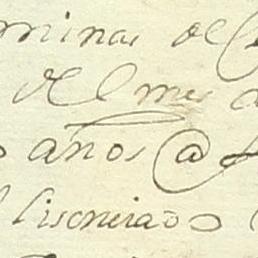 minas de
del mes
años @
lisenciado